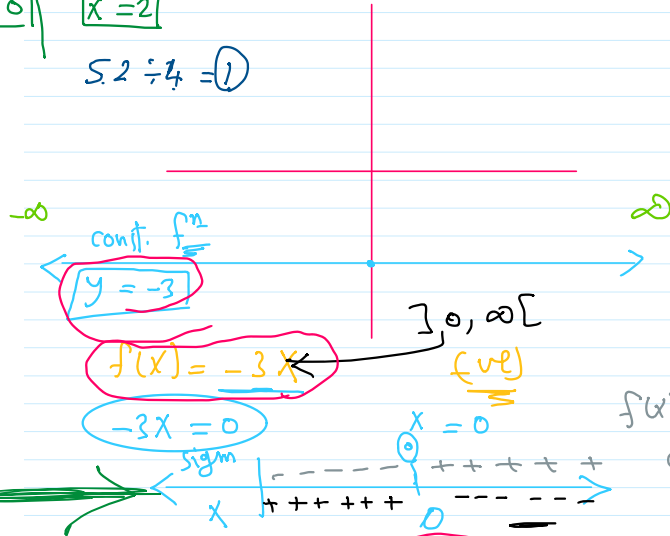 0 x = 2
5.2 ÷ 4 = 1
-∞ ∞
const. fⁿ
y = -3
]0, ∞[
f(x) = -3x (-ve)
f(x
-3x = 0 x = 0
sigm - - - - - - - 0 + + + + +
x + + + + + + 0 - - - - - -